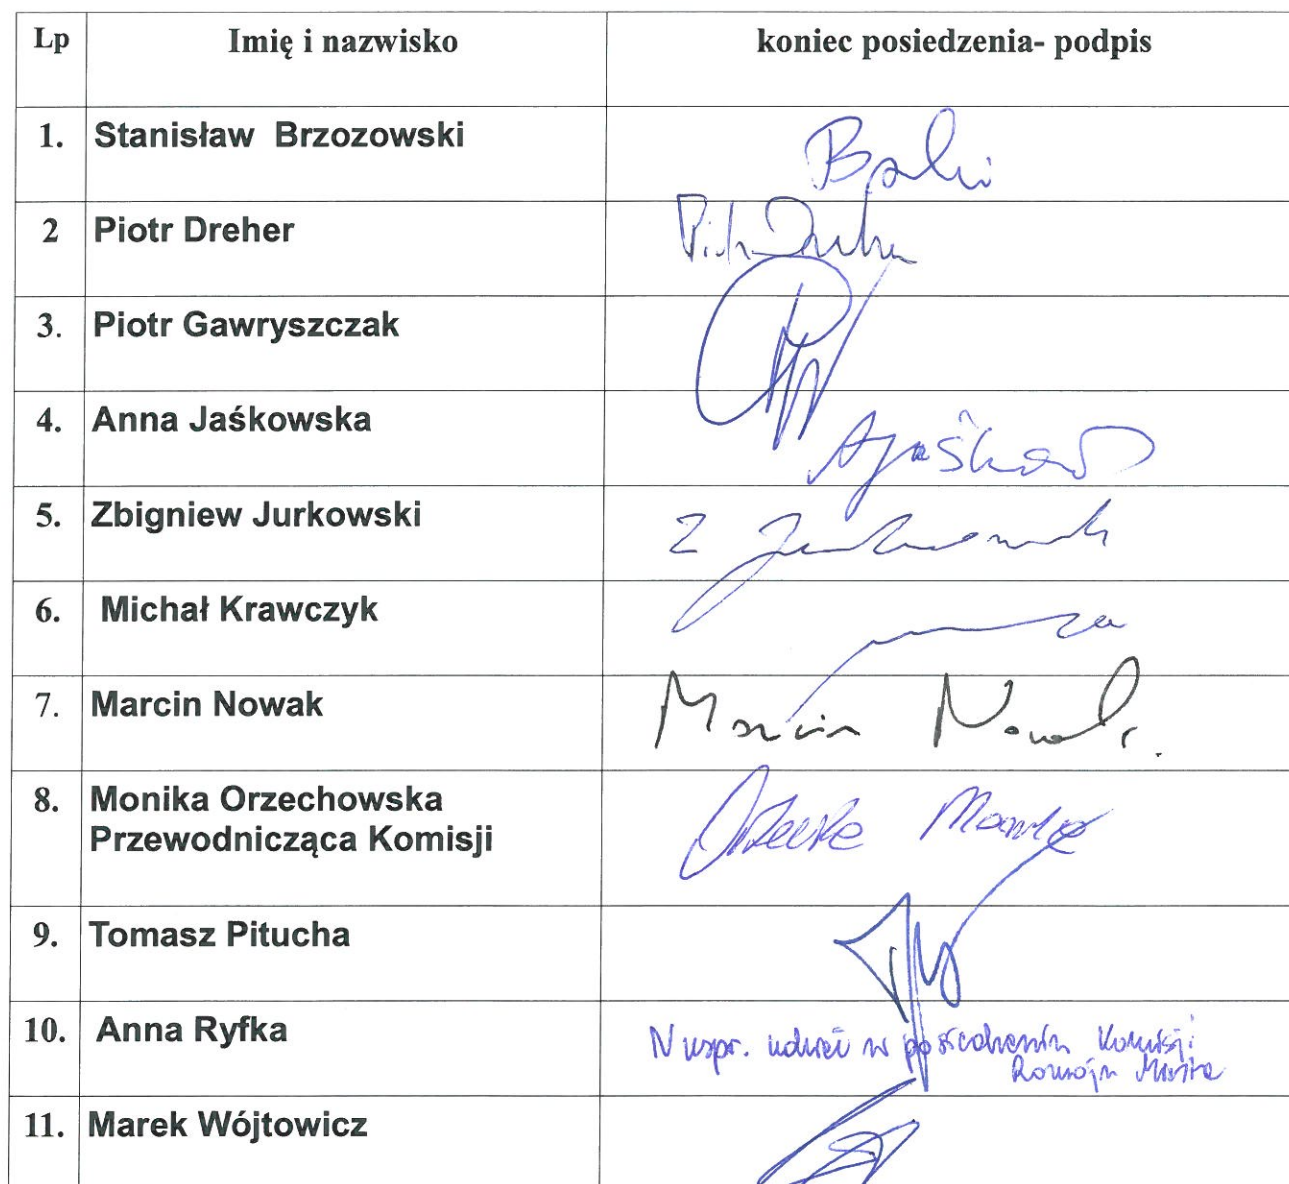 Lp Imię i nazwisko koniec posiedzenia- podpis
1. Stanisław Brzozowski
2 Piotr Dreher
3. Piotr Gawryszczak
4. Anna Jaśkowska
5. Zbigniew Jurkowski
6. Michał Krawczyk
7. Marcin Nowak Marcin Nowak
8. Monika Orzechowska
Przewodnicząca Komisji
9. Tomasz Pitucha
10. Anna Ryfka N uspr. udział w posiedzeniu Komisji
Rozwoju Miasta
11. Marek Wójtowicz